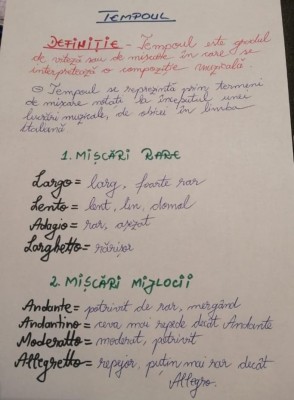 TEMPOUL
DEFINIȚIE - Tempoul este gradul
de viteză sau de mișcare în care se
interpretează o compoziție muzicală
Tempoul se reprezintă prin termeni
de mișcare notată la începutul unei
lucrări muzicale, de obicei în limba
italiană
1. MIȘCĂRI RARE
Largo = larg, foarte rar
Lento = lent, lin, domol
Adagio = rar, așezat
Larghetto = rărișor
2. MIȘCĂRI MIJLOCII
Andante = potrivit de rar, mergând
Andantino = ceva mai repede decât Andante
Moderatto = moderat, potrivit
Allegretto = repejor, puțin mai rar decât
Allegro.